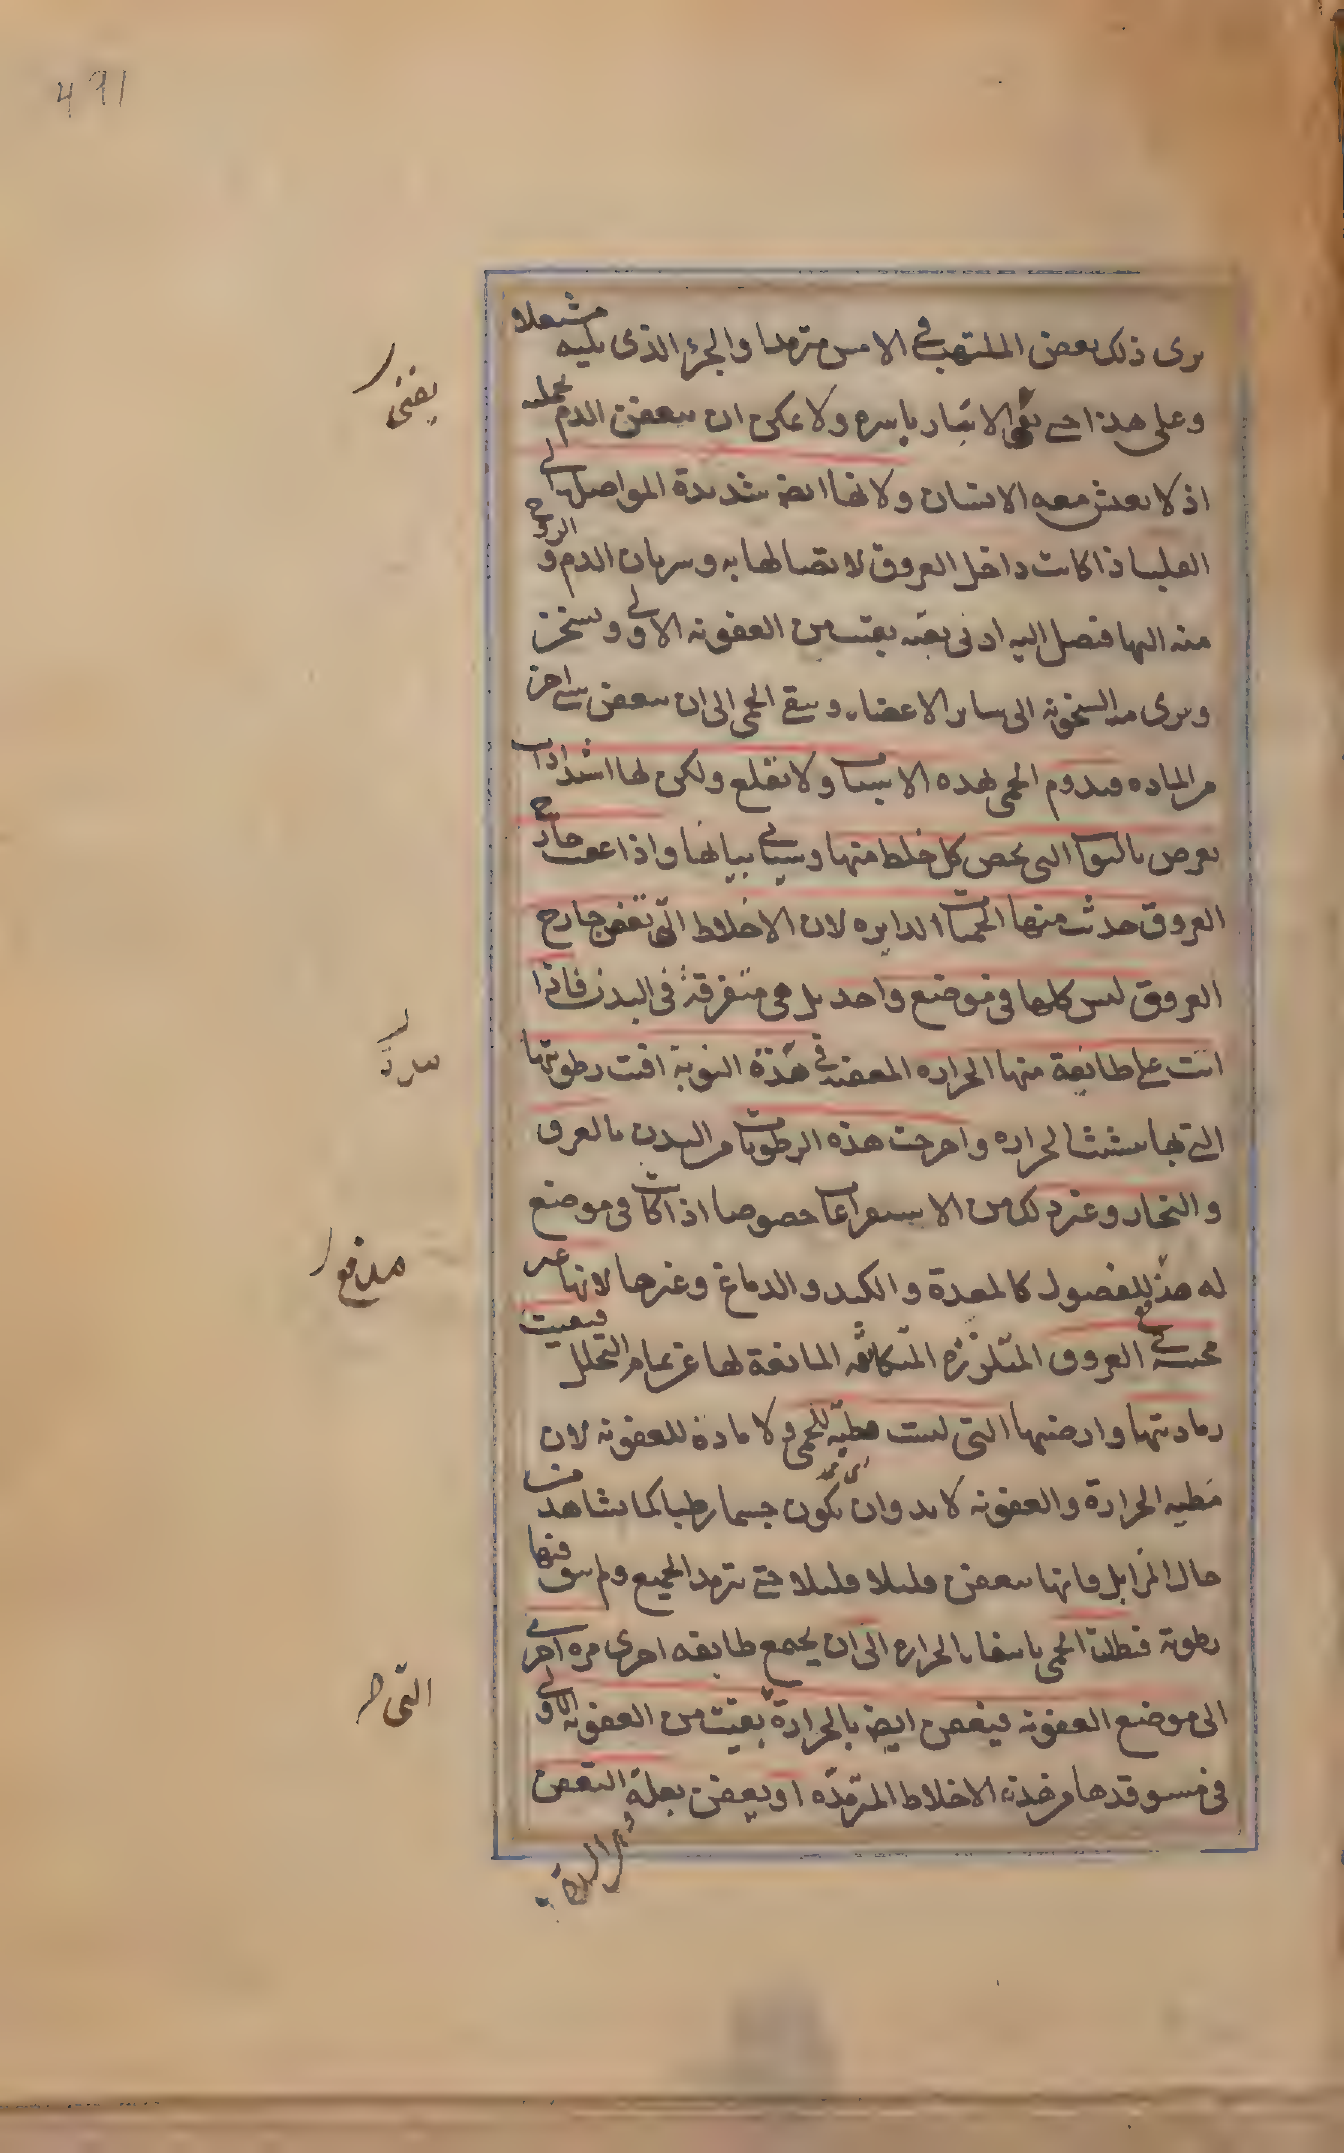 ٤٩١
يرى ذلك بعض الملتهب في الامس مترمدا والجزء الذى يليه مشتعلا و
وعلى هذا حتى يفنى الانبار باسره ولا يمكن ان يتعفن الدم بجملته
اذ لا يعيش معه الانسان ولانها ايضا شديدة المواصلة الى
القلب اذا كانت داخل العروق لاتصالها به وسريان الدم و الروح
منه اليها فتصل اليه ادنى بقية بقيت من العفونة الاولى ويسخن
ويرى منه السخونة الى ساير الاعضاء ويبقى الحمى الى ان يتعفن شى اخر
من الماده فيدوم الحمى لهذه الاسباب ولا تقلع ولكن لها اشتدادات
تعرض بالنوايب التى تخص كل خلط منها وسياتى بيانها واذا عفنت خارج
العروق حدثت منها الحميات الدايره لان الاخلاط التى تعفن خارج
العروق ليس كلها فى موضع واحد بل هى متفرقة فى البدن فاذا
اتت على طايفة منها الحراره المعفنة في هذه النوبة افنت رطوبتها
التى بها تتشبث الحراره واخرجت هذه الرطوبات من البدن بالعرق
والبخار وغير ذلك من الاستفراغات خصوصا اذا كانت فى موضع
له منفذ للفضول كالمعدة والكبد والدماغ وغيرها لانها غير
محتبسة فى العروق المتلززه المتكاثفه المانعة لها عن تمام التحلل فبقيت
رماديتها وارضيتها التى ليست مطية للحمى ولا مادة للعفونه لان
مطيه الحرارة والعفونه لا بد وان يكون جسما رطبا كما يشاهد من
حال المزابل فانها تتعفن قليلا قليلا حتى يترمد الجميع ولم يبق فيها
رطوبة فبطلت الحمى بانتفاء الحراره الى ان يجتمع طايفه اخرى مره اخرى
الى موضع العفونه فيعفن ايضا بالحرارة بقيت من العفونه الاولى
فى مستوقدها من هذه الاخلاط المترمده او يعفن بعلة التعفن
يفنى
مدفع
التى